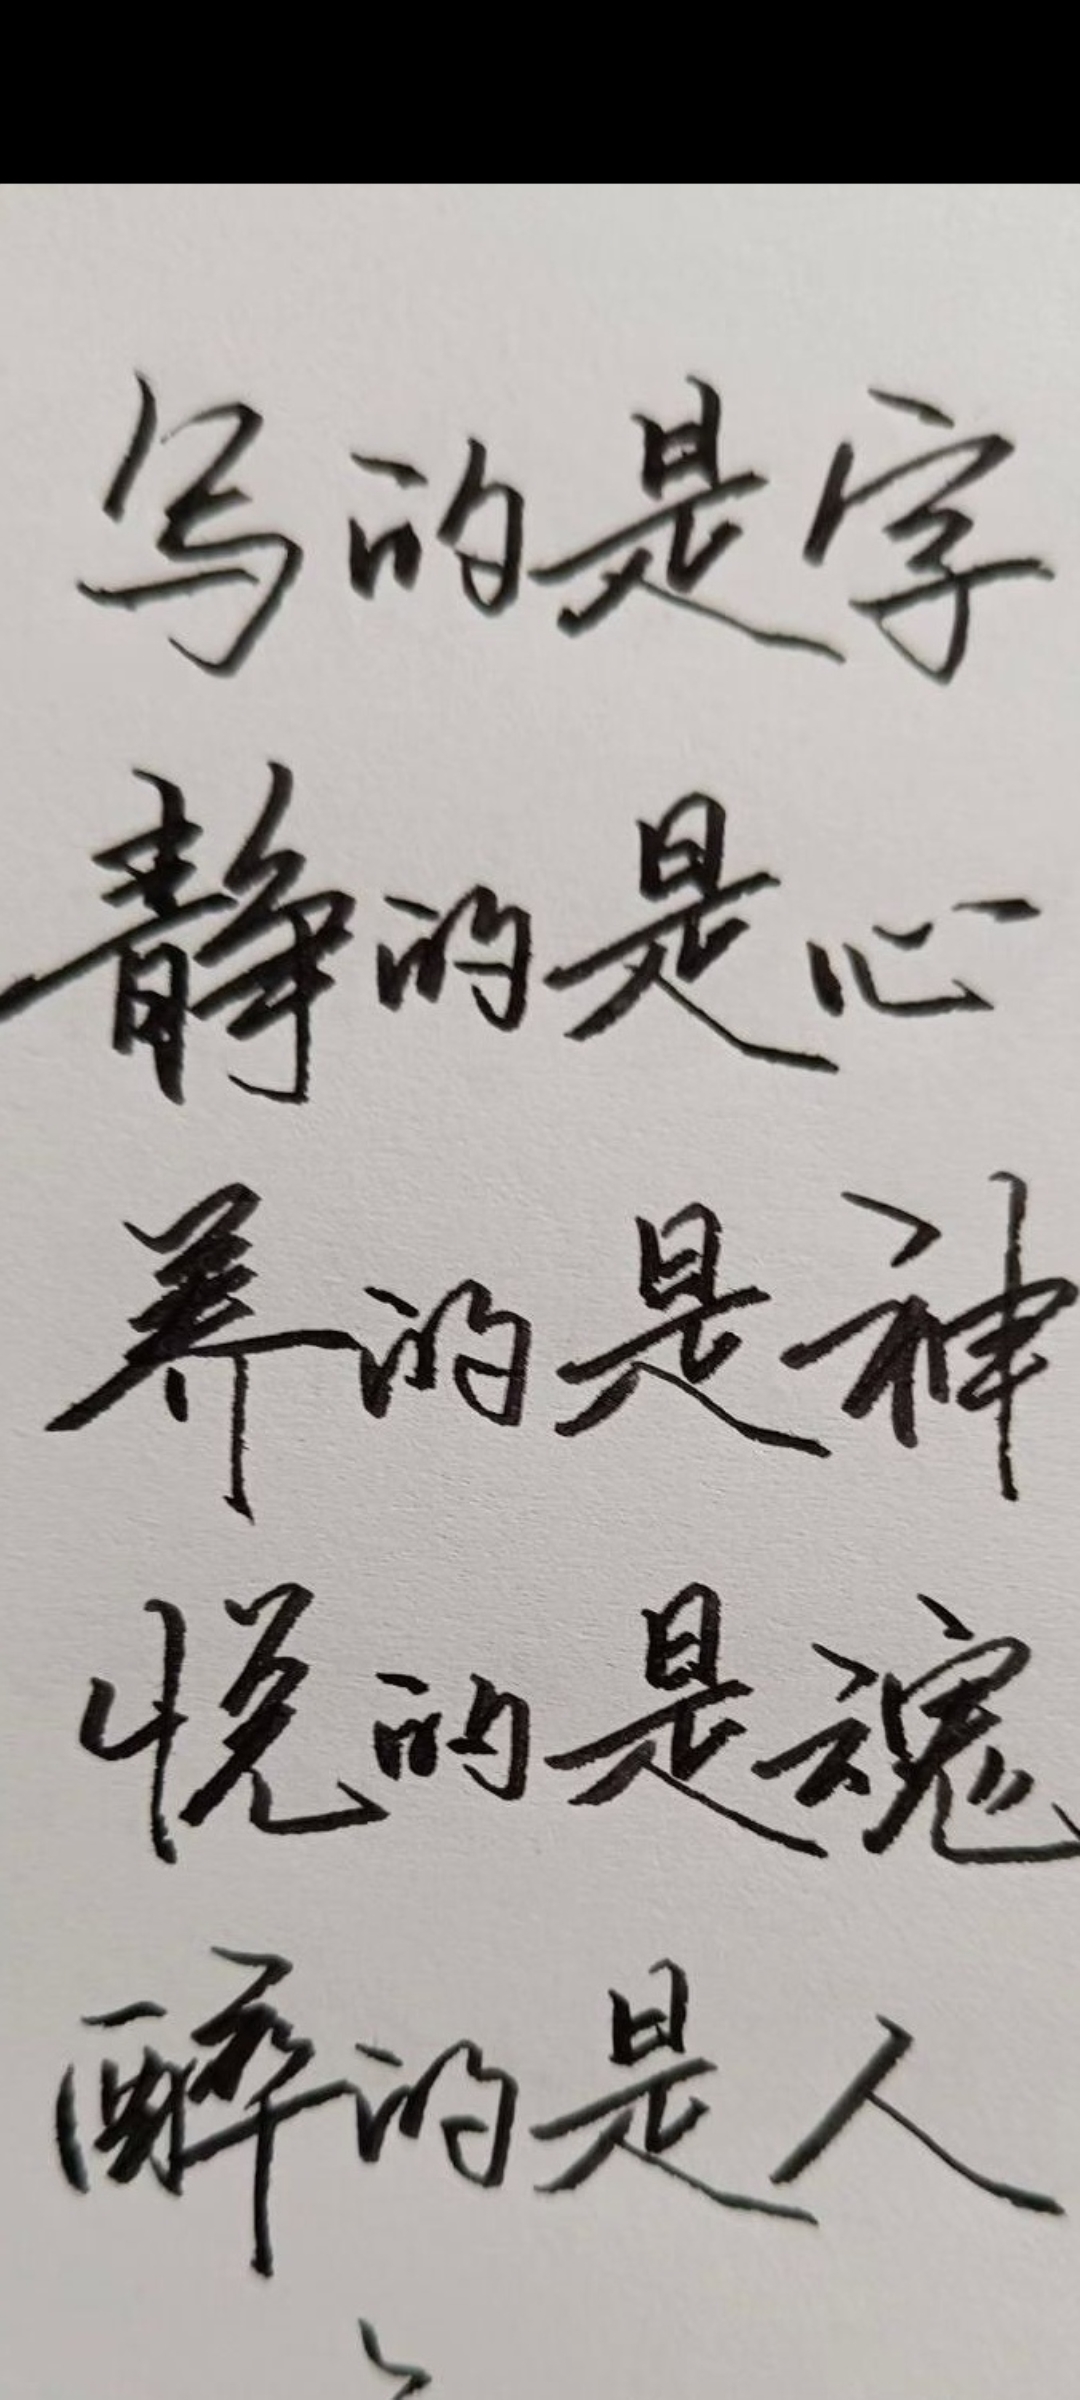 写的是字
静的是心
养的是神
悦的是魂
醉的是人